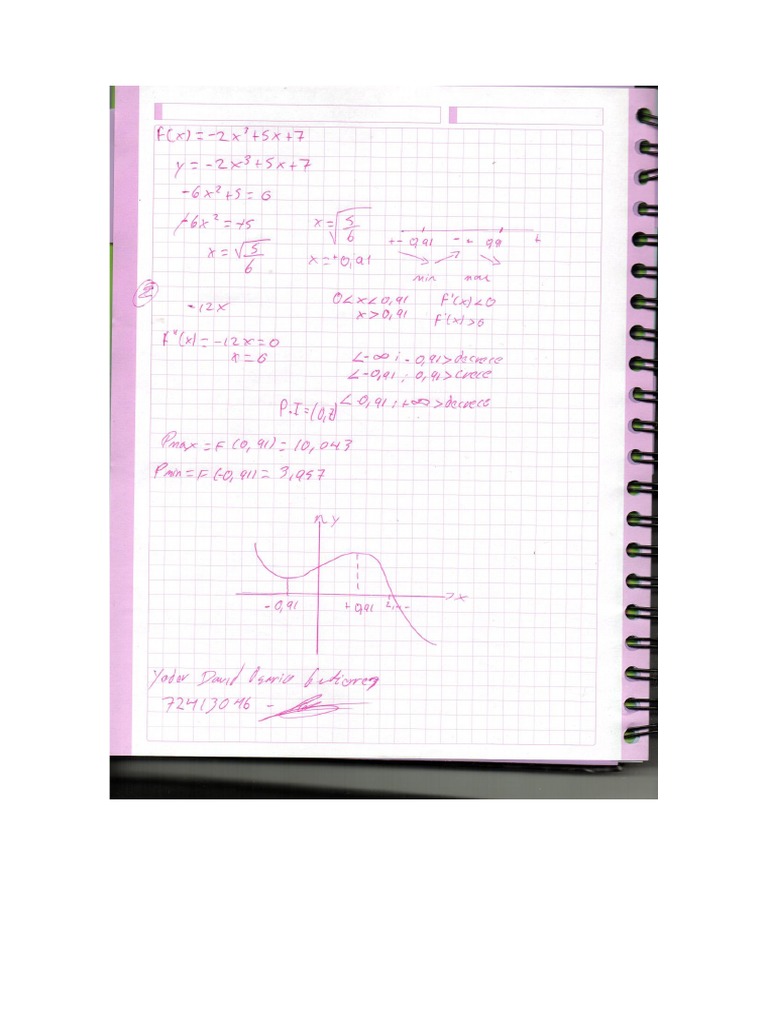 F(x) = -2x³+5x+7
y = -2x³+5x+7
-6x²+5 = 0
-6x² = -5
x = √5/6
x = √5/6
x = ±0,91
+- 0,91 -+ 0,91 +
min max
②
-12x
0<x<0,91 F'(x)<0
x>0,91 F'(x)>0
F''(x) = -12x = 0
x = 0
<-∞ ; -0,91> decrece
<-0,91 ; 0,91> crece
<0,91 ; +∞> decrece
P.I = (0,7)
Pmax = F(0,91) = 10,043
Pmin = F(-0,91) = 3,957
y
-0,91 +0,91 x
David Osorio
72413046